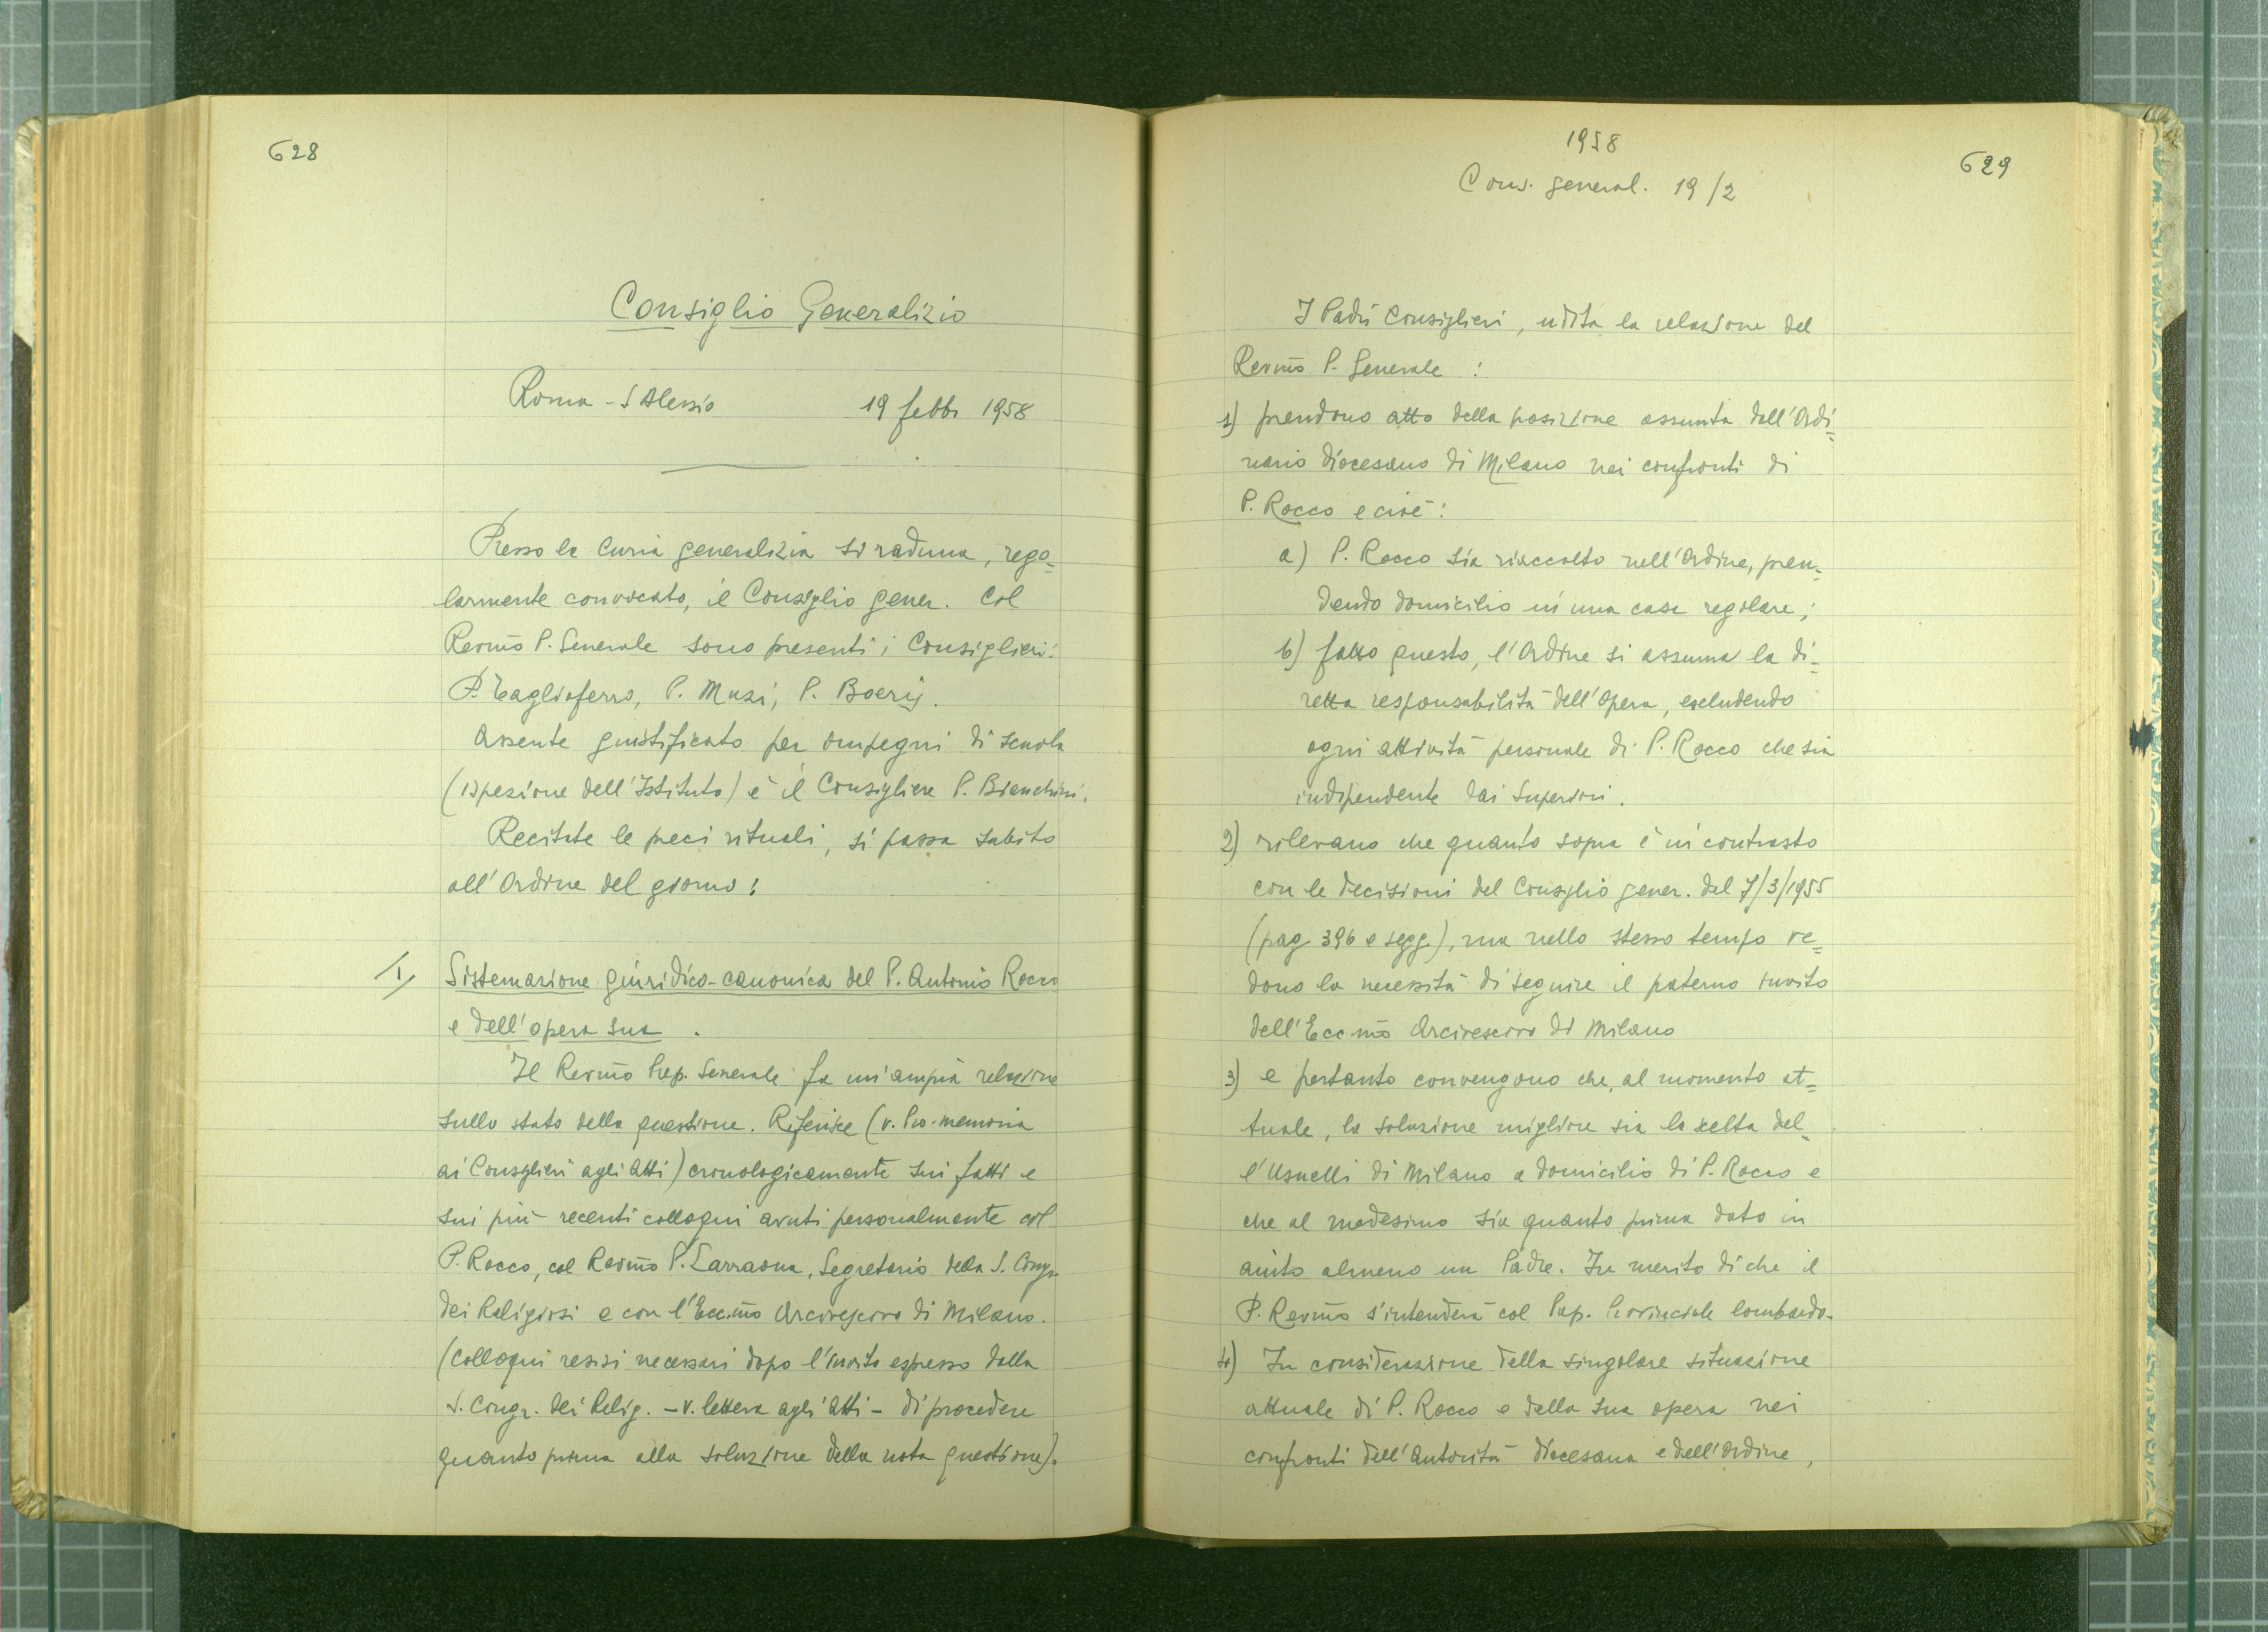 628
Consiglio Generalizio
Roma - S Alessio 19 febbr 1958
Presso la Curia generalizia si raduna, rego=
larmente convocato, il Consiglio gener. Col
Revmo P. Generale sono presenti i Consiglieri:
P. Tagliaferro, P. Muzi, P. Boeris.
Assente giustificato per impegni di scuola
(ispezione dell'Istituto) è il Consigliere P. Bianchini.
Recitate le preci rituali, si passa subito
all'Ordine del giorno:
1/ Sistemazione giuridico-canonica del P. Antonio Rocco
e dell'opera sua.
Il Revmo Prep. Generale fa un'ampia relazione
sullo stato della questione. Riferisce (v. Pro-memoria
ai Consiglieri agli Atti) cronologicamente sui fatti e
sui più recenti colloqui avuti personalmente col
P. Rocco, col Revmo P. Larraona, Segretario della S. Congr.
dei Religiosi e con l'Ecc.mo Arcivescovo di Milano.
(Colloqui resisi necessari dopo l'invito espresso dalla
S. Congr. dei Relig. - v. lettera agli Atti - di procedere
quanto prima alla soluzione della nota questione).
1958
629
Cons. general. 19/2
I Padri Consiglieri, udita la relazione del
Revmo P. Generale :
1) prendono atto della posizione assunta dall'Ordi=
nario diocesano di Milano nei confronti di
P. Rocco e cioè:
a) P. Rocco sia riaccolto nell'Ordine, pren=
dendo domicilio in una casa regolare;
b) fatto questo, l'Ordine si assuma la di=
retta responsabilità dell'Opera, escludendo
ogni attività personale di P. Rocco che sia
indipendente dai Superiori.
2) rilevano che quanto sopra è in contrasto
con le decisioni del Consiglio gener. del 7/3/1955
(pag. 396 e segg.), ma nello stesso tempo ve=
dono la necessità di seguire il paterno invito
dell'Eccmo Arcivescovo di Milano
3) e pertanto convengono che, al momento at=
tuale, la soluzione migliore sia la scelta del=
l'Usuelli di Milano a domicilio di P. Rocco e
che al medesimo sia quanto prima dato in
aiuto almeno un Padre. In merito di che il
P. Revmo s'intenderà col Prep. Provinciale lombardo.
4) In considerazione della singolare situazione
attuale di P. Rocco e della sua opera nei
confronti dell'Autorità diocesana e dell'Ordine,